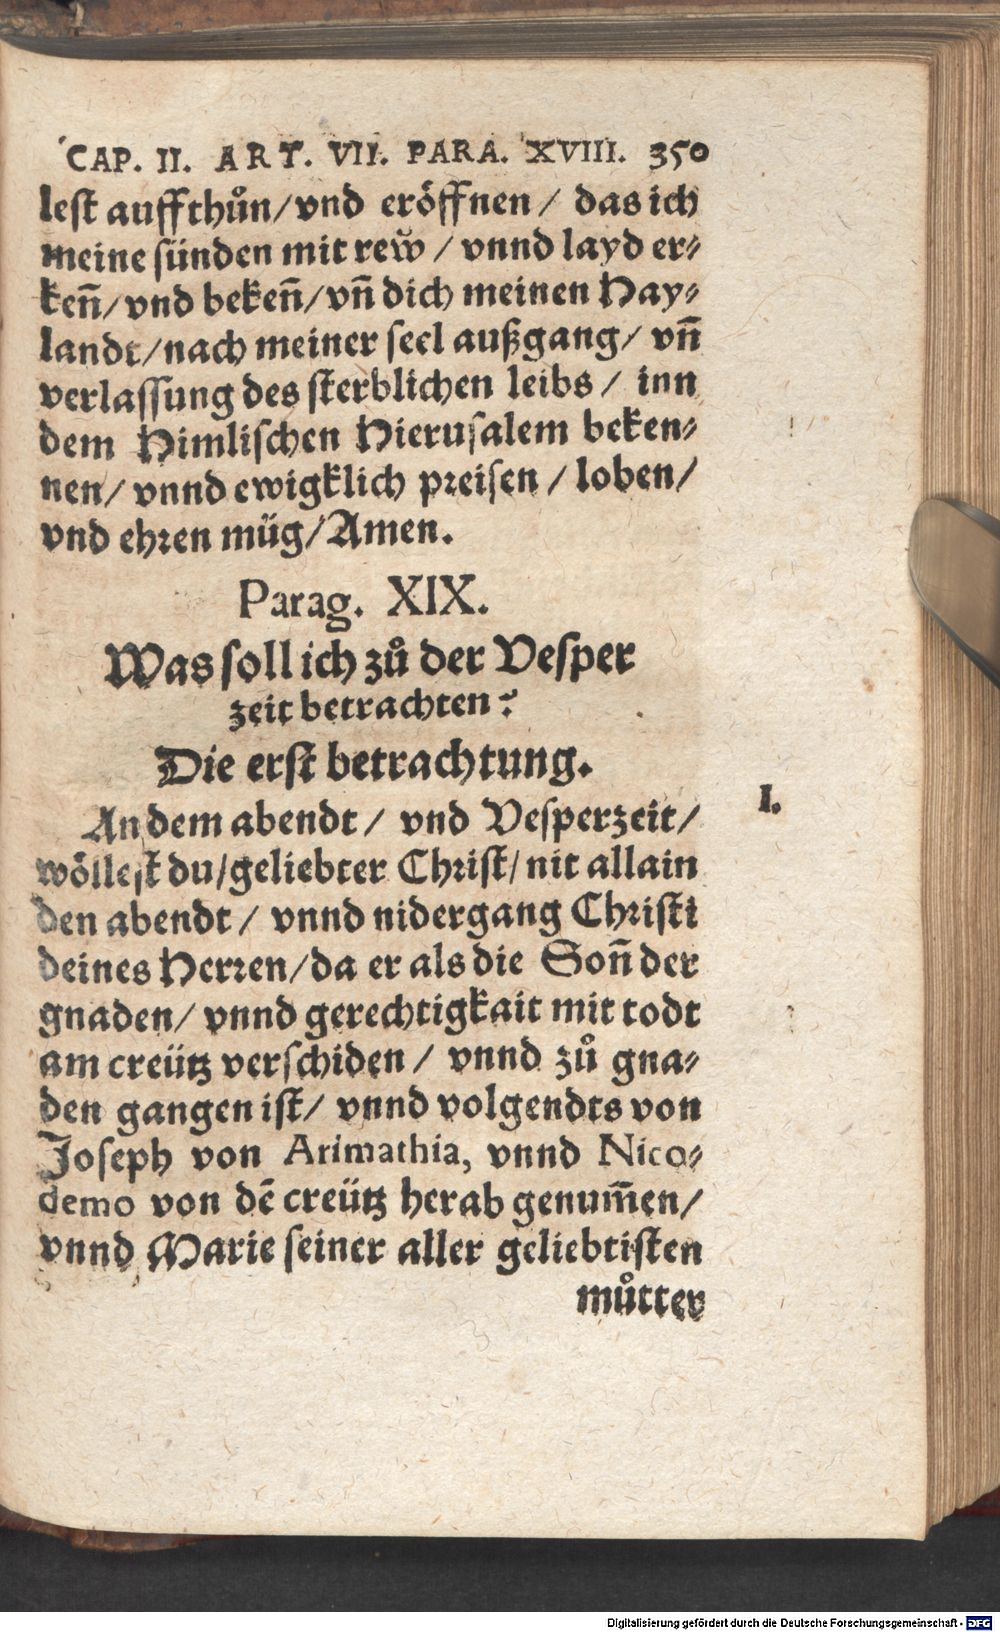 CAP. II. ART. VII. PARA. XVIII. 350
lest auffthůn/vnd eröffnen/ das ich
meine sünden mit rew̆ / vnnd layd er⸗
ken̄/vnd beken̄/vn̄ dich meinen Hay⸗
landt/nach meiner seel außgang/ vn̄
verlassung des sterblichen leibs / inn
dem Himlischen Hierusalem beken⸗
nen/ vnnd ewigklich preisen / loben/
vnd ehren müg/Amen.
Parag. XIX.
Was soll ich zů der Vesper
zeit betrachten?
Die erst betrachtung.
I.
An dem abendt/ vnd Vesperzeit/
wöllest du/geliebter Christ/nit allain
den abendt/ vnnd nidergang Christi
deines Herren/da er als die Son̄ der
gnaden/ vnnd gerechtigkait mit todt
am creütz verschiden / vnnd zů gna⸗
den gangen ist/ vnnd volgendts von
Joseph von Arimathia, vnnd Nico⸗
demo von dē creütz herab genum̄en/
vnnd Marie seiner aller geliebtisten
můtter
Digitalisierung gefördert durch die Deutsche Forschungsgemeinschaft - DFG